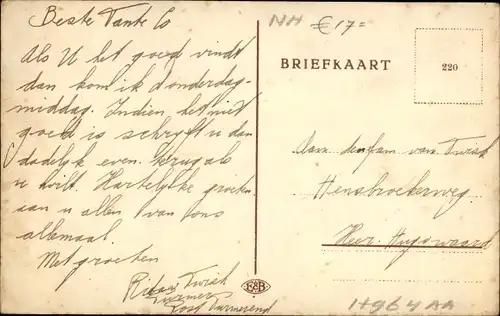 Beste Tante Co
Als U het goed vindt
dan kom ik donderdag-
middag. Indien het niet
goed is schryft u dan
dadelyk even terug als
u wilt. Hartelyke groeten
aan u allen van ons
allemaal
Met groeten
Twisk
Purmer
Post Purmerend
NH €17=
BRIEFKAART
220
Aan den fam van Twisk
Hensbroekerweg
Heer-Hugowaard
F&B
H964AA